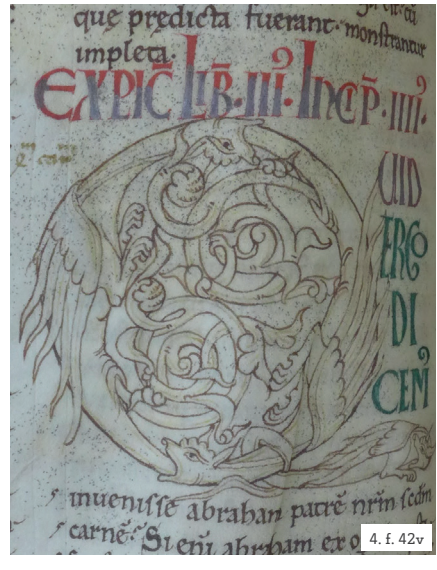 quę prędicta fuerant· monstrantur
impleta·
EXPLIC̄ LIB̄·III᾿· INCIP̄·IIII᾿·
UID
ERGO
DI
CEMꝰ
inuenisse abrahan patrē nr̄m scdm̄
carnē· Si eni᾿ abraham ex
4. f. 42v